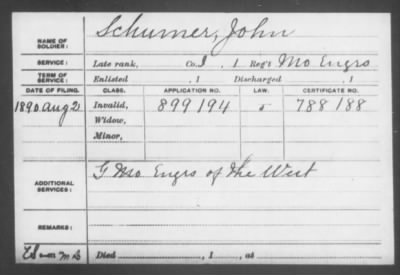 NAME OF SOLDIER: Schumer, John
SERVICE: Late rank, Co. I, 1 Reg't Mo Engrs
TERM OF SERVICE: Enlisted , 1 Discharged , 1
DATE OF FILING. CLASS. APPLICATION NO. LAW. CERTIFICATE NO.
1890 Aug 2 Invalid, 899194 788188
Widow,
Minor,
ADDITIONAL SERVICES: G Mo Engrs of the West
REMARKS:
Died , 1 , at